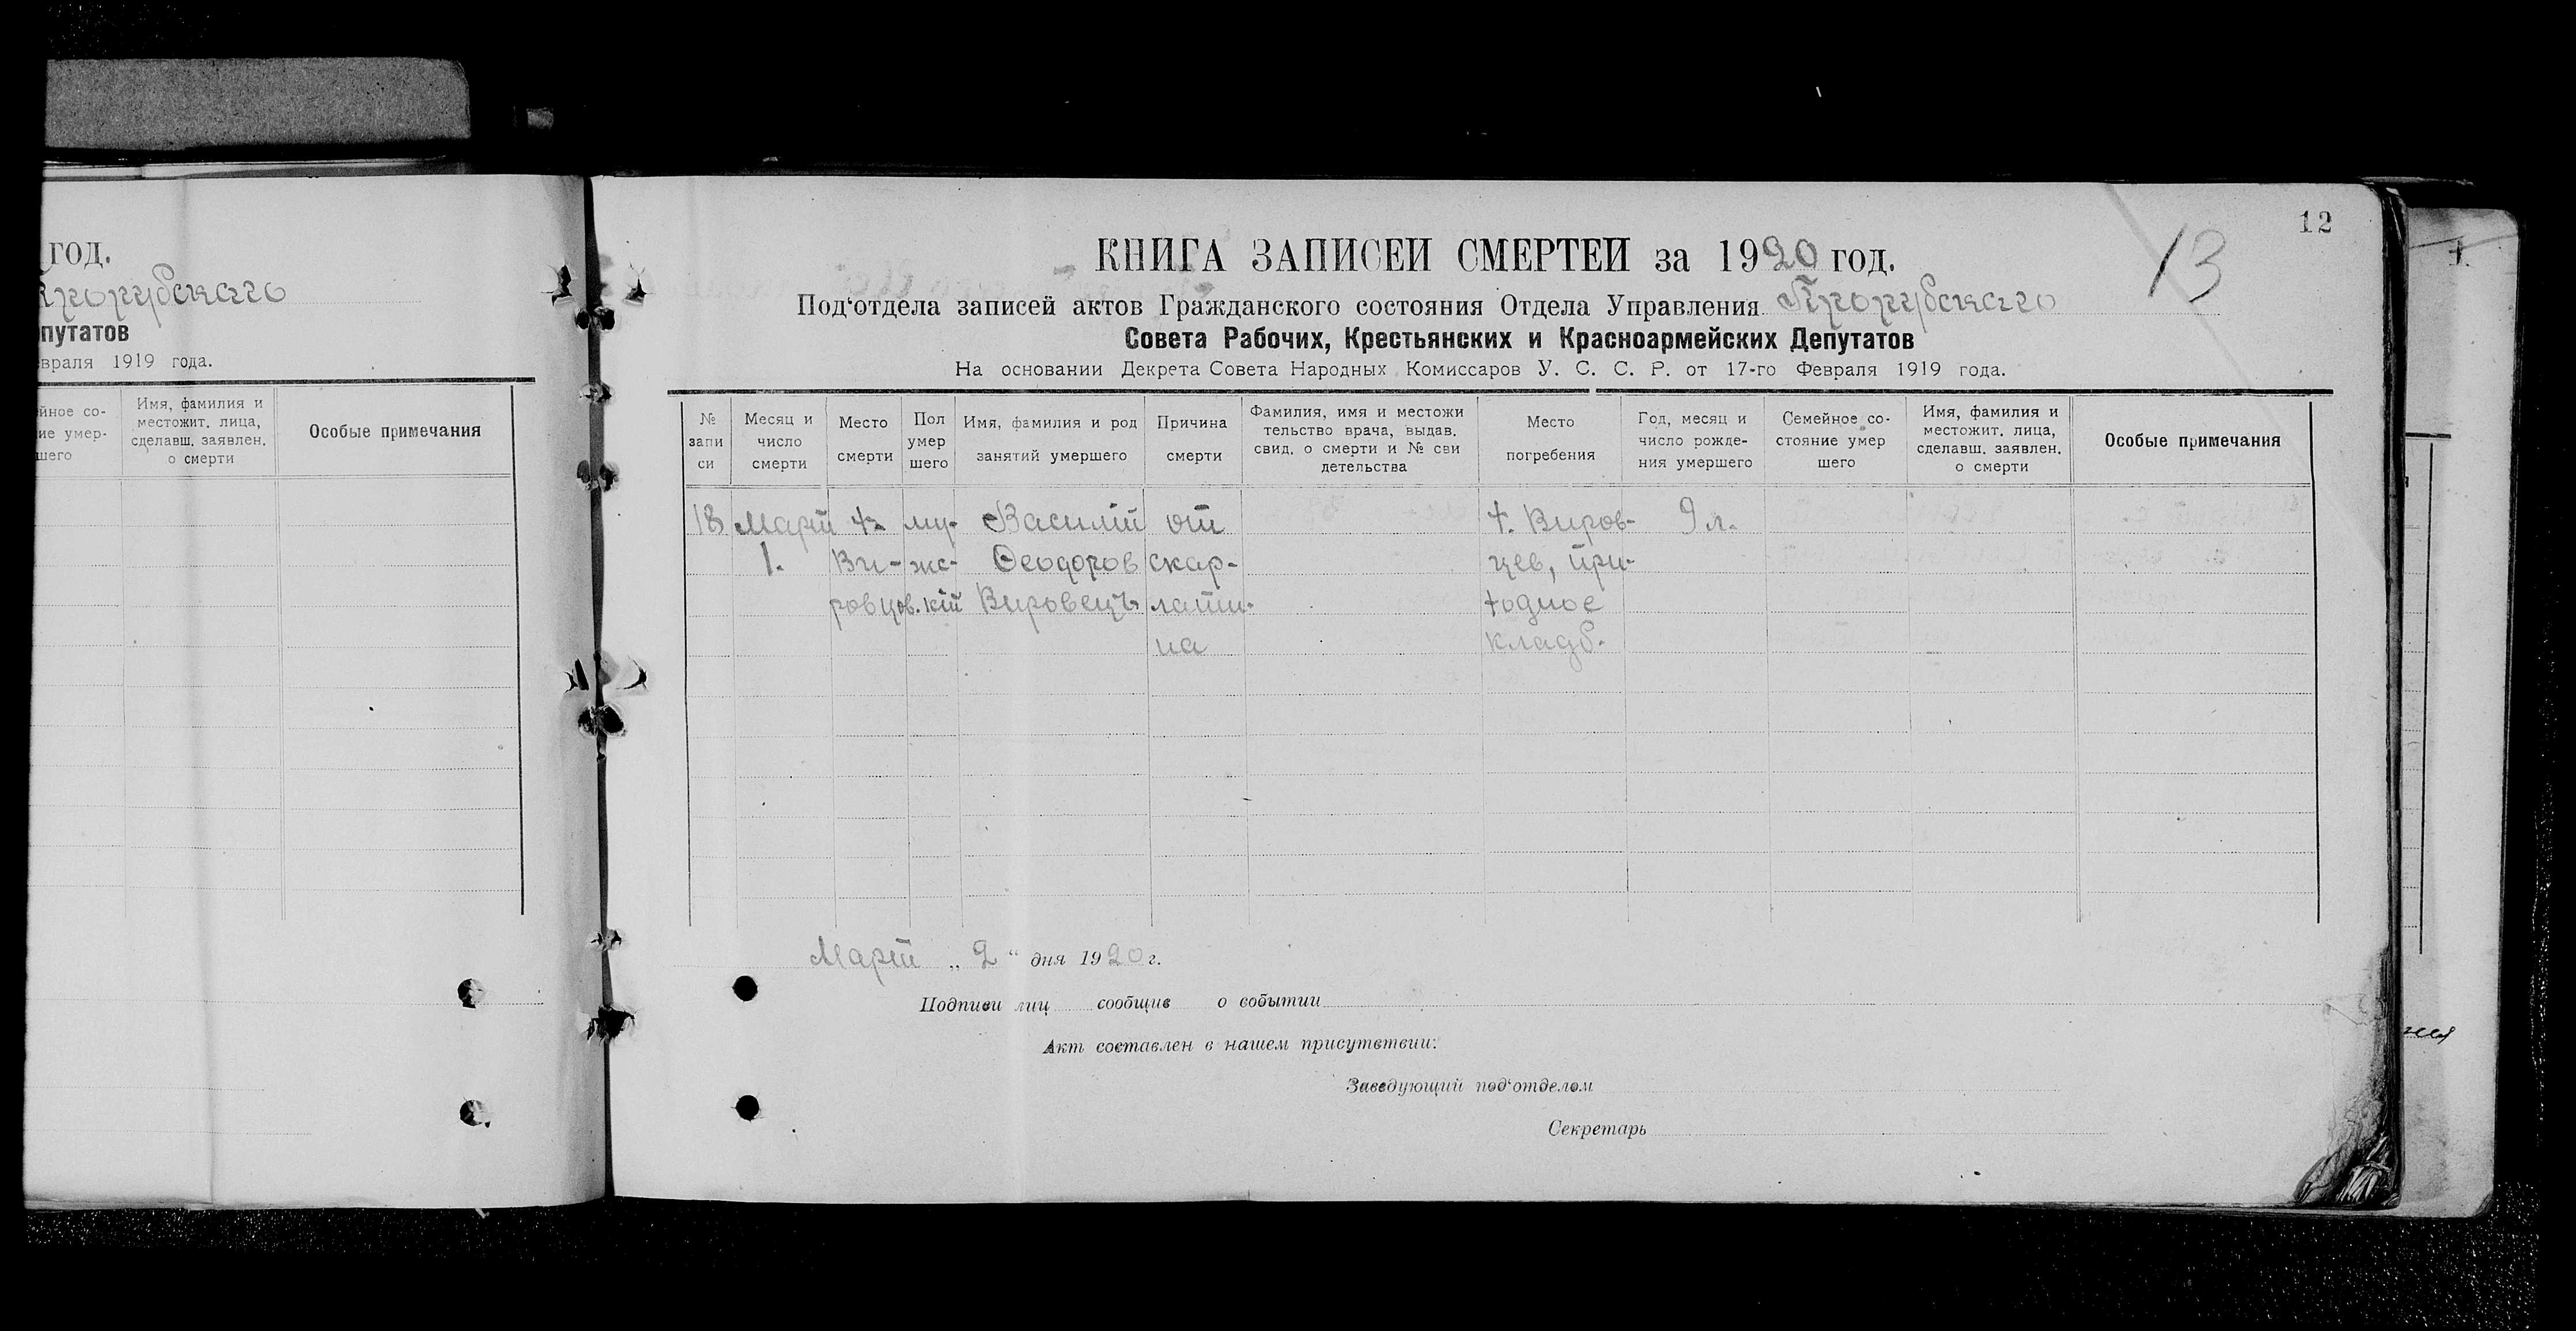 год.
Прорубского
путатов
враля 1919 года.
йное со-
ие умер-
шего
Имя, фамилия и
местожит. лица,
сделавш. заявлен.
о смерти
Особые примечания
12
13
КНИГА ЗАПИСЕЙ СМЕРТЕЙ за 1920 год.
Под‘отдела записей актов Гражданского состояния Отдела Управления
Совета Рабочих, Крестьянских и Красноармейских Депутатов
На основании Декрета Совета Народных Комиссаров У. С. С. Р. от 17-го Февраля 1919 года.
№
запи
си
Месяц и
число
смерти
Место
смерти
Пол
умер
шего
Имя, фамилия и род
занятий умершего
Причина
смерти
Фамилия, имя и местожи
тельство врача, выдав.
свид. о смерти и № сви
детельства
Место
погребения
Год, месяц и
число рожде-
ния умершего
Семейное со-
стояние умер
шего
Имя, фамилия и
местожит. лица,
сделавш. заявлен.
о смерти
Особые примечания
18 Март х. му- Василій от х. Виров- 9 л.
1. Ви- жс- Ѳеодоров скар- цев, при-
ровцов. кій Вировецъ лати- ходное
на кладб.
Март „ 2 “ дня 1920 г.
Подписи лиц сообщив о событии
Акт составлен в нашем присутствии:
Заведующий под‘отделом
Секретарь